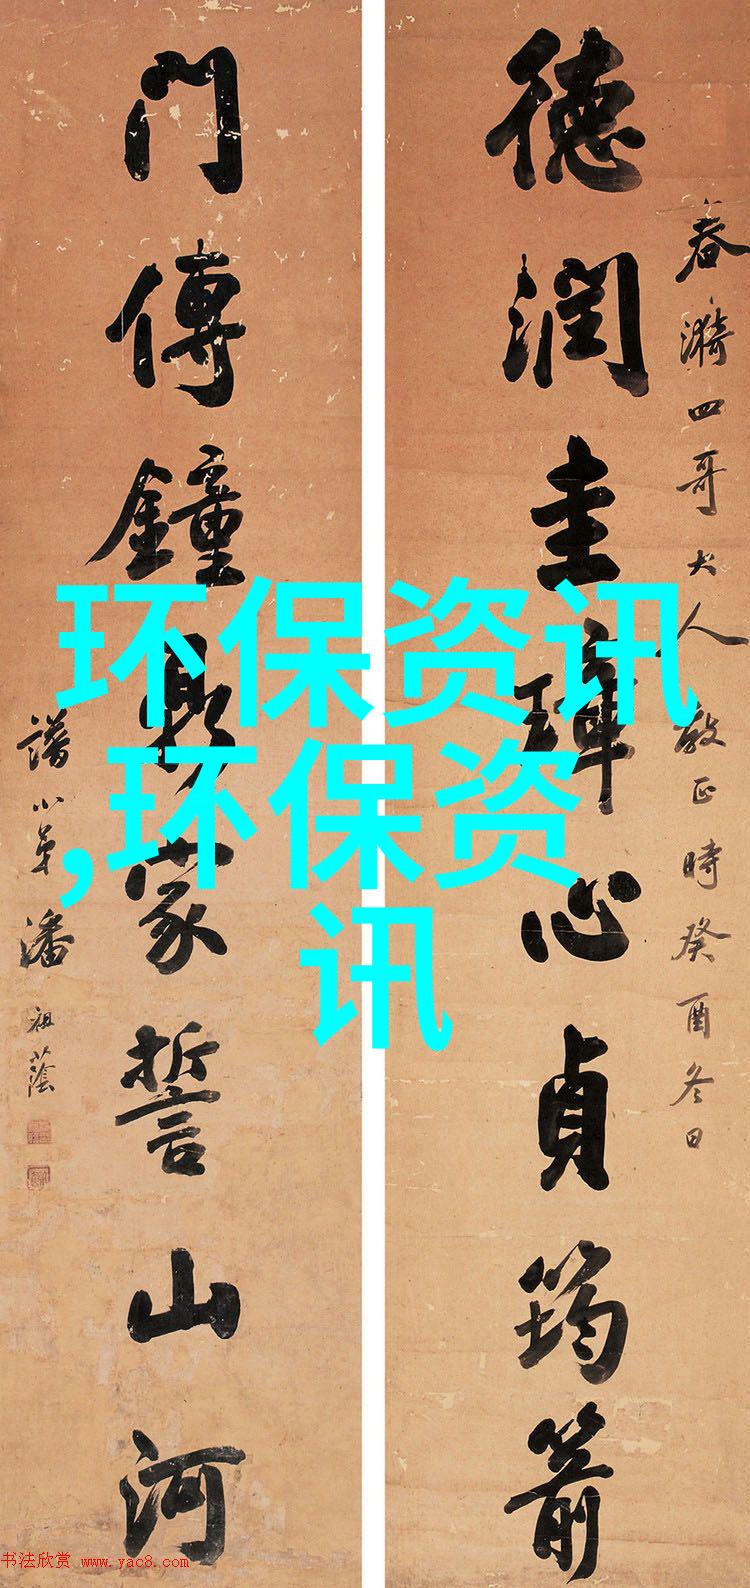 春漪四哥大人教正時癸酉冬日
德潤圭璋心貞筠箭
門傳鐘鼎家誓山河
譜小弟潘祖蔭
环保资讯
,环保资
讯
书法欣赏 www.yac8.com